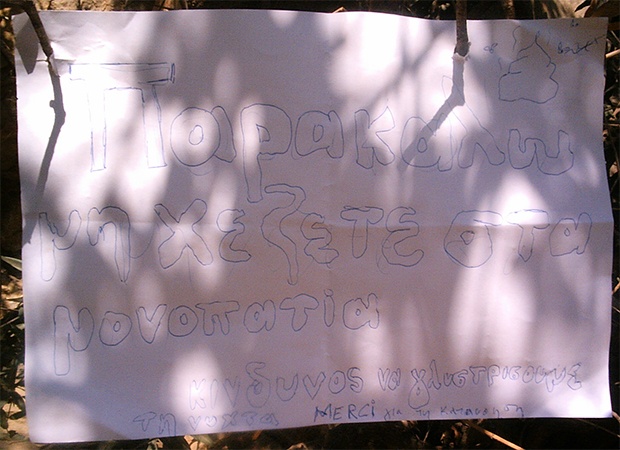 Παρακαλω
μη χεζετε στα
μονοπατια
κινδυνος να γλιστρισουμε
τη νυχτα MERCi για τη κατανοηση